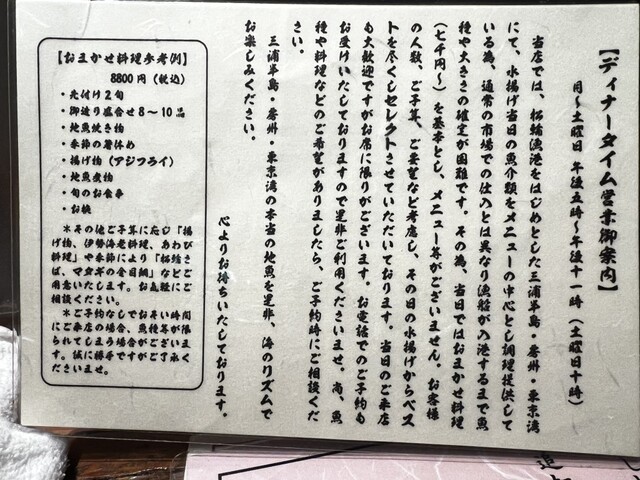 【ディナータイム営業御案内】
月〜土曜日 午後五時〜午後十一時（土曜日十時）
当店では、松輪漁港をはじめとした三浦半島・房州・東京湾
にて、水揚げ当日の魚介類をメニューの中心とし調理提供して
いる為、通常の市場での仕入とは異なり漁船が入港するまで魚
種や大きさの確定が困難です。その為、当日ではおまかせ料理
（七千円〜）を基本とし、メニュー等がございません。お客様
の人数、ご予算、ご要望など考慮し、その日の水揚げからベス
トを尽くしセレクトさせていただいております。当日のご来店
も大歓迎ですがお席に限りがございます。お電話でのご予約も
お受けいたしておりますので是非ご利用くださいませ。尚、魚
種や料理などのご希望がありましたら、ご予約時にご相談くだ
さい。
三浦半島・房州・東京湾の本当の地魚を是非、海のリズムで
お楽しみください。
心よりお待ちいたしております。
【おまかせ料理参考例】
8800円（税込）
・先付け2旬
・御造り盛合せ8〜10品
・地魚焼き物
・季節の箸休め
・揚げ物（アジフライ）
・地魚煮物
・旬のお食事
・お椀
＊その他ご予算に応じ「揚
げ物、伊勢海老料理、あわび
料理」や季節により「松輪さ
ば、マダギの金目鯛」などご
用意いたします。お気軽にご
相談ください。
＊ご予約なしでおそい時間
にご来店の場合、魚種等が限
られてしまう場合がございま
す。誠に勝手ですがご了承く
ださいませ。